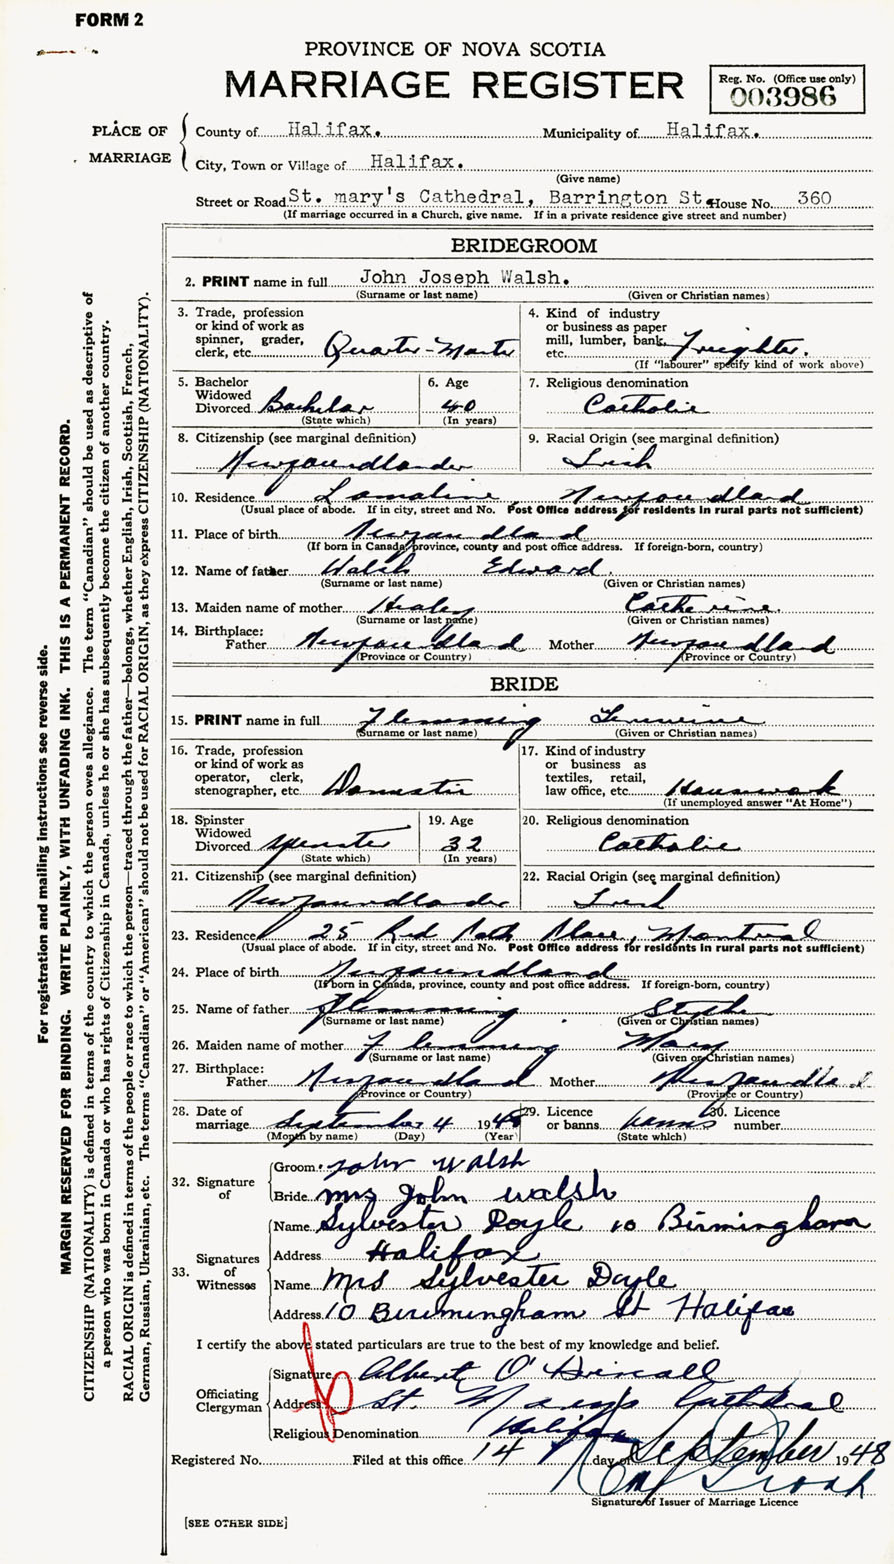 FORM 2
PROVINCE OF NOVA SCOTIA
MARRIAGE REGISTER
Reg. No. (Office use only)
003986
PLACE OF MARRIAGE
County of Halifax. Municipality of Halifax.
City, Town or Village of Halifax.
(Give name)
Street or Road St. mary's Cathedral, Barrington St. House No. 360
(If marriage occurred in a Church, give name. If in a private residence give street and number)
BRIDEGROOM
2. PRINT name in full John Joseph Walsh.
(Surname or last name) (Given or Christian names)
3. Trade, profession or kind of work as spinner, grader, clerk, etc. Quarter-Master
4. Kind of industry or business as paper mill, lumber, bank, etc. Freighter.
(If "labourer" specify kind of work above)
5. Bachelor Widowed Divorced Bachelor
(State which)
6. Age 40
(In years)
7. Religious denomination Catholic
8. Citizenship (see marginal definition) Newfoundlander
9. Racial Origin (see marginal definition) Irish
10. Residence Lamaline, Newfoundland
(Usual place of abode. If in city, street and No. Post Office address for residents in rural parts not sufficient)
11. Place of birth Newfoundland
(If born in Canada, province, county and post office address. If foreign-born, country)
12. Name of father Walsh Edward.
(Surname or last name) (Given or Christian names)
13. Maiden name of mother Healey Catherine.
(Surname or last name) (Given or Christian names)
14. Birthplace:
Father Newfoundland Mother Newfoundland
(Province or Country) (Province or Country)
BRIDE
15. PRINT name in full Flemming
(Surname or last name) (Given or Christian names)
16. Trade, profession or kind of work as operator, clerk, stenographer, etc. Domestic
17. Kind of industry or business as textiles, retail, law office, etc. Housework
(If unemployed answer "At Home")
18. Spinster Widowed Divorced spinster
(State which)
19. Age 32
(In years)
20. Religious denomination Catholic
21. Citizenship (see marginal definition) Newfoundlander
22. Racial Origin (see marginal definition) Irish
23. Residence 25 Red Path Place, Montreal
(Usual place of abode. If in city, street and No. Post Office address for residents in rural parts not sufficient)
24. Place of birth Newfoundland
(If born in Canada, province, county and post office address. If foreign-born, country)
25. Name of father Flemming Stephen
(Surname or last name) (Given or Christian names)
26. Maiden name of mother Flemming Mary
(Surname or last name) (Given or Christian names)
27. Birthplace:
Father Newfoundland Mother Newfoundland
(Province or Country) (Province or Country)
28. Date of marriage September 4 1948
(Month by name) (Day) (Year)
29. Licence or banns banns
(State which)
30. Licence number
32. Signature of
Groom John Walsh
Bride Mrs John Walsh
33. Signatures of Witnesses
Name Sylvester Doyle 10 Birmingham
Address Halifax
Name Mrs Sylvester Doyle
Address 10 Birmingham St Halifax
I certify the above stated particulars are true to the best of my knowledge and belief.
Officiating Clergyman
Signature Albert O'Driscoll
Address St. Mary's Cathedral
Religious Denomination Halifax
Registered No. Filed at this office 14 day of September 1948
Signature of Issuer of Marriage Licence
[SEE OTHER SIDE]
For registration and mailing instructions see reverse side.
MARGIN RESERVED FOR BINDING. WRITE PLAINLY, WITH UNFADING INK. THIS IS A PERMANENT RECORD.
CITIZENSHIP (NATIONALITY) is defined in terms of the country to which the person owes allegiance. The term "Canadian" should be used as descriptive of
a person who was born in Canada or who has rights of Citizenship in Canada, unless he or she has subsequently become the citizen of another country.
RACIAL ORIGIN is defined in terms of the people or race to which the person—traced through the father—belongs, whether English, Irish, Scottish, French,
German, Russian, Ukrainian, etc. The terms "Canadian" or "American" should not be used for RACIAL ORIGIN, as they express CITIZENSHIP (NATIONALITY).